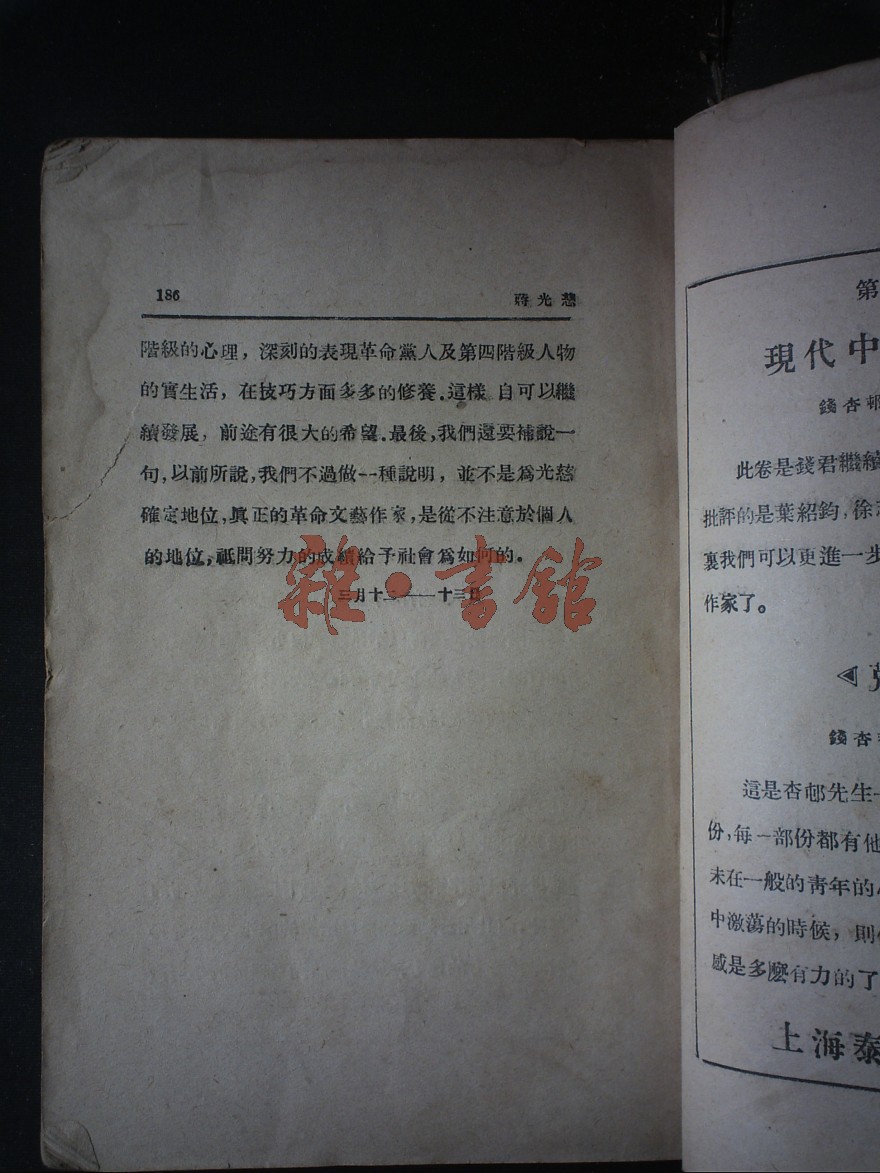 186
蔣光慈
階級的心理，深刻的表現革命黨人及第四階級人物
的實生活，在技巧方面多多的修養．這樣 自可以繼
續發展，前途有很大的希望．最後，我們還要補說一
句，以前所說，我們不過做一種說明，並不是爲光慈
確定地位，眞正的革命文藝作家，是從不注意於個人
的地位，祗問努力的成績給予社會爲如何的。
三月十二——十三日
雜·書館
第
現代中
錢杏邨
此卷是錢君繼續
批評的是葉紹鈞，徐
裏我們可以更進一步
作家了。
錢杏
這是杏邨先生
份，每一部份都有他
未在一般的青年的
中激蕩的時候，則
感是多麽有力的了
上海泰